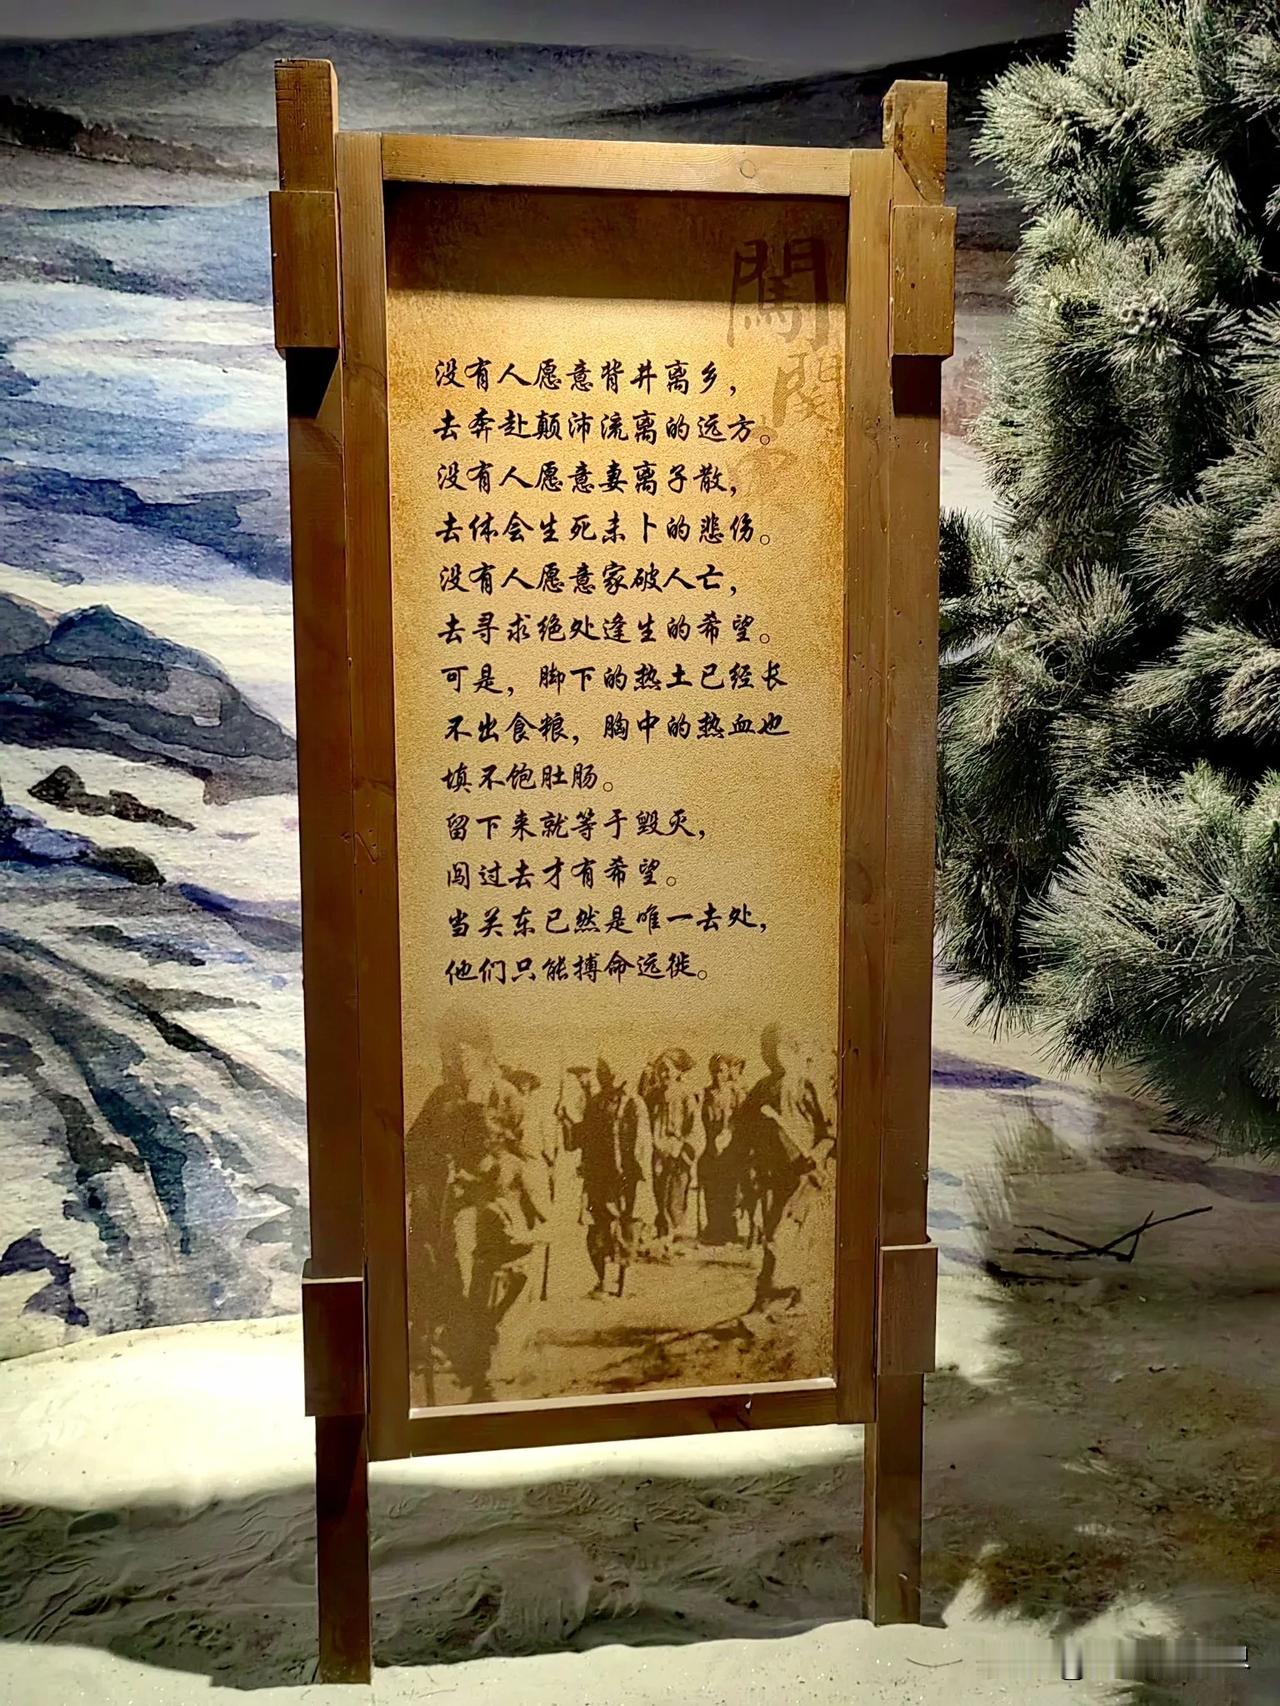 闖
没有人愿意背井离乡，
去奔赴颠沛流离的远方。
没有人愿意妻离子散，
去体会生死未卜的悲伤。
没有人愿意家破人亡，
去寻求绝处逢生的希望。
可是，脚下的热土已经长
不出食粮，胸中的热血也
填不饱肚肠。
留下来就等于毁灭，
闯过去才有希望。
当关东已然是唯一去处，
他们只能搏命远徙。